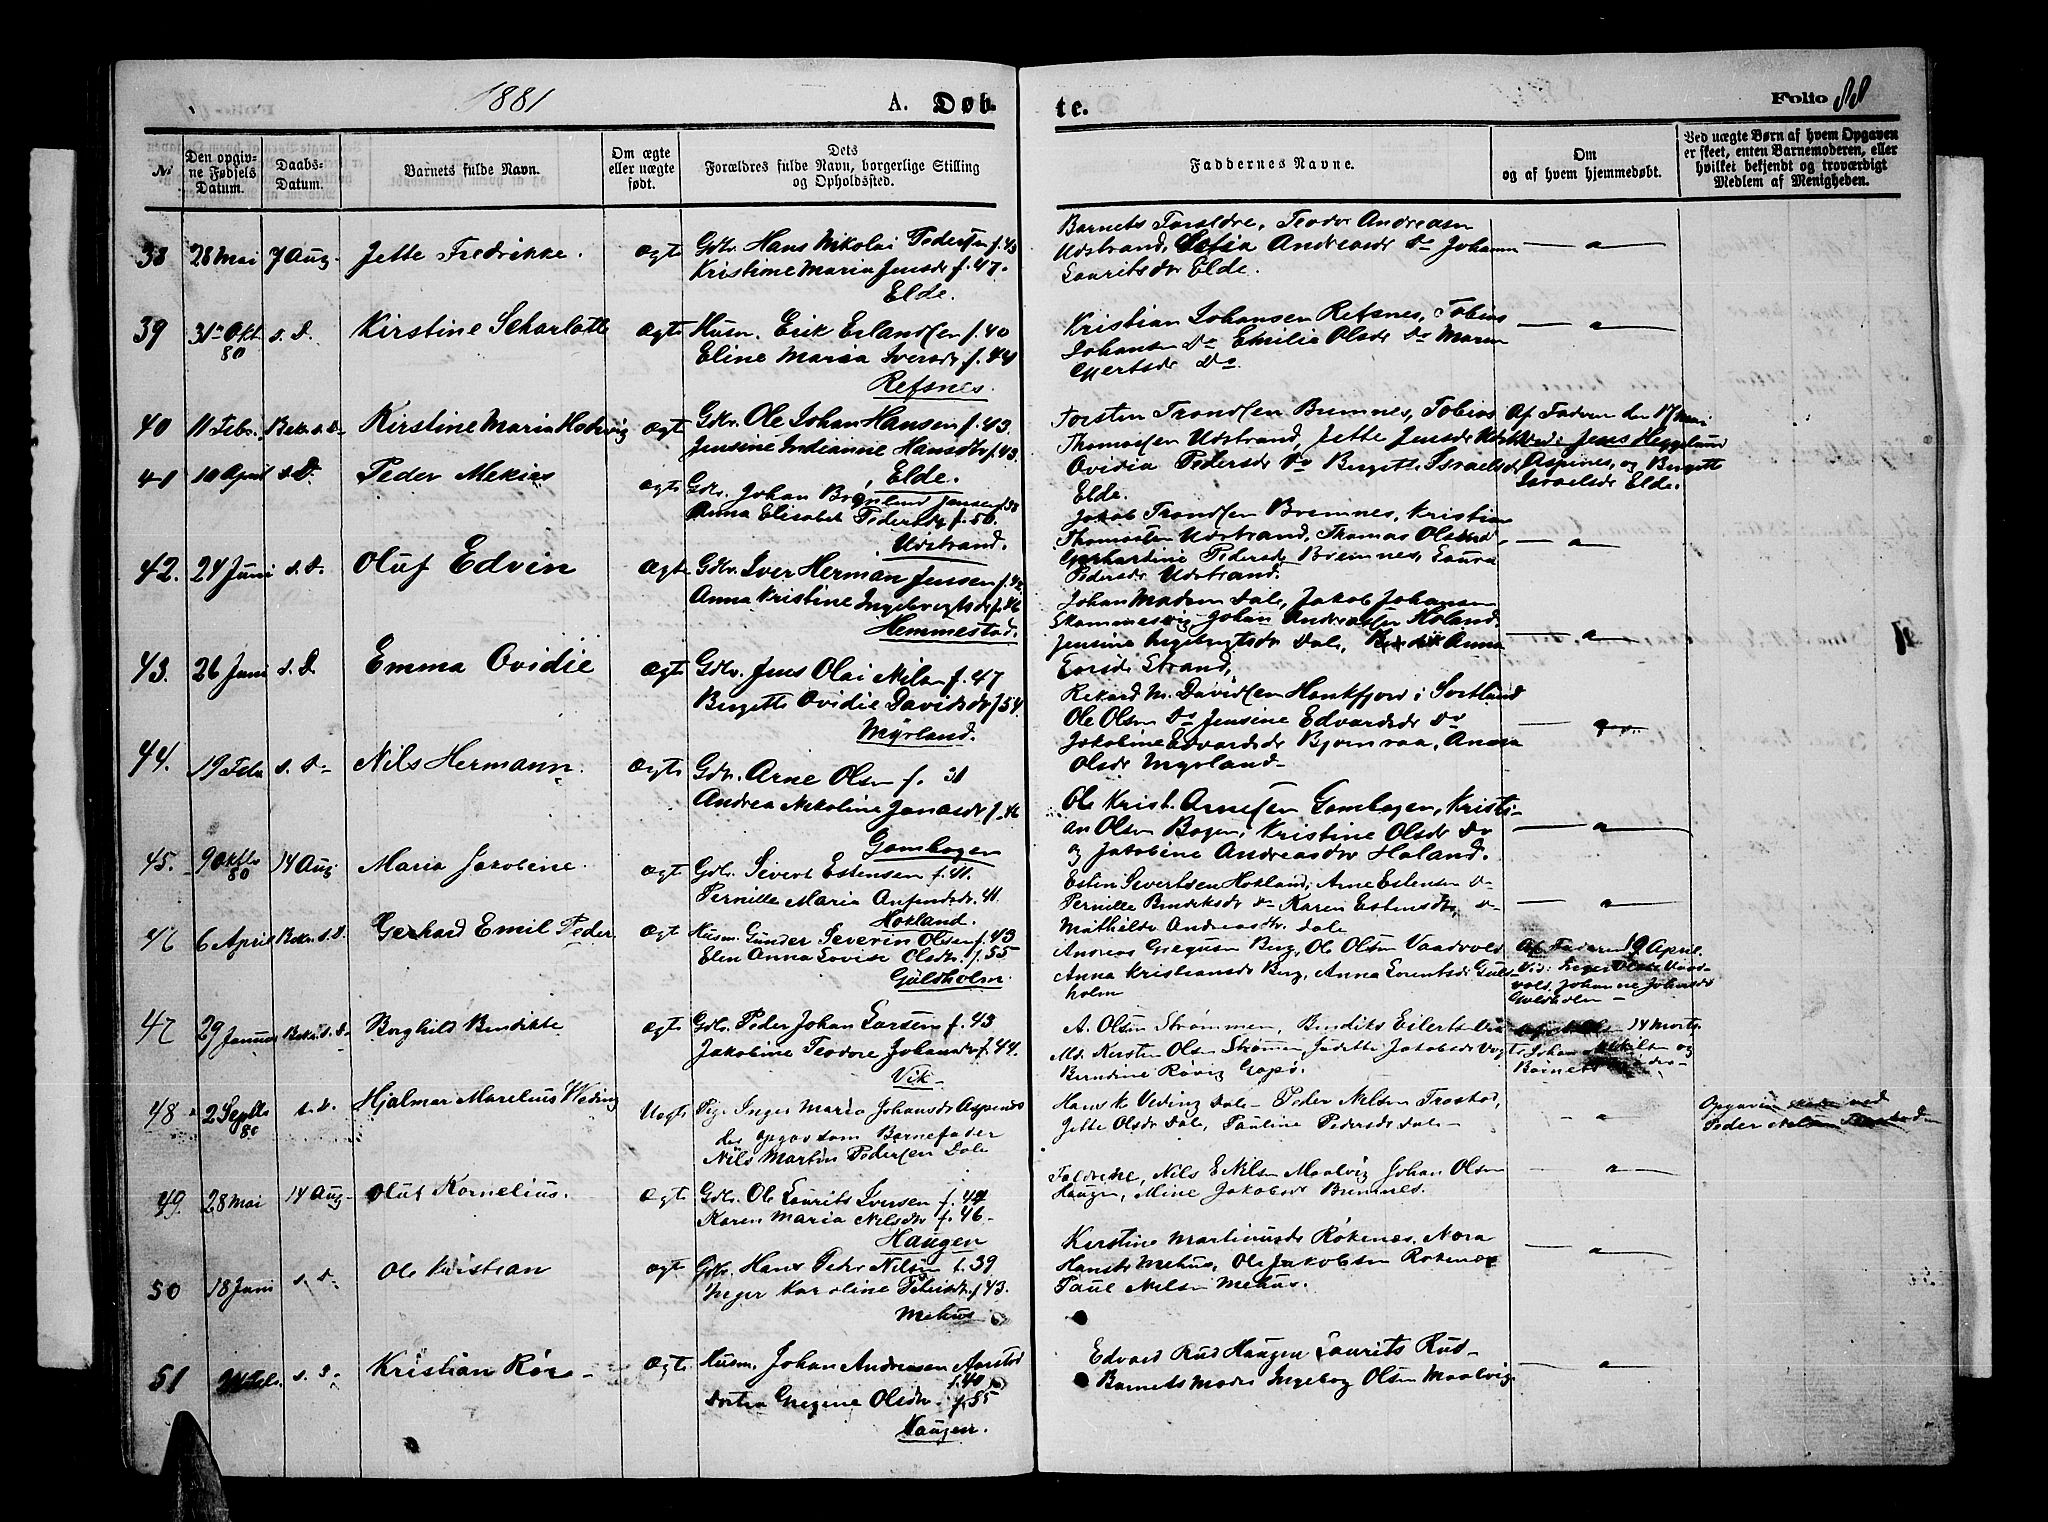 1881
A. Døb
te.
Folio 88
No.
Den opgiv-
ne Fødsels
Datum.
Daabs-
Datum.
Barnets fulde Navn.
Om ægte
eller uægte
født.
Dets
Forældres fulde Navn, borgerlige Stilling
og Opholdssted.
Faddernes Navne.
Om
og af hvem hjemmedøbt.
Ved uægte Børn af hvem Opgaven
er skeet, enten Barnemoderen, eller
hvilket bekjendt og troværdigt
Medlem af Menigheden.
38 28 Mai 7 Aug. Jette Fredrikke. Ægte Gdbr. Hans Nikolai Pedersen f. 43
Kristine Maria Jensdr f. 47.
Elde.
Barnets Forældre, Teodor Andreasen
Udstrand, Sofia Andreasdr Do Johanna
Lauritsdr Elde.
39 31 Okt. 80 s. D. Kirstine Scharlotte Ægte Husm. Erik Erlandsen f. 40
Eline Maria Iversdr f. 44
Refsnes.
Kristian Johansen Refsnes, Tobias
Johansen Do Emilie Olsdr Do Maren
Do
40 11 Febr. Bekr. s. D. Kirstine Maria Hedevig Ægte Gdbr. Ole Johan Hansen f. 43
Jensine Indianne Hansdtr f. 43.
Elde.
Torsten Trondsen Bremnes, Tobias
Thomassen Udstrand, Jette Jensdr
Ovidia Pedersdr Do Bergitte Israelsdr
Elde.
Af Faderen den 17 Mai
Vid: Jens Heggelund
Aspenes, og Bergitte
Israelsdr Elde.
41 10 April s. D. Peder Mekias Ægte Gdbr. Johan Brønlund Jensen f. 38
Anna Elisabet Pedersdr f. 50.
Udstrand.
Jakob Trondsen Bremnes, Kristian
Thomassen Udstrand, Thomas Olsen
Gerhardine Pedersdr Bremnes, Laura
Pedersdr Udstrand.
42. 24 Juni s. D. Oluf Edvin Ægte Gdbr. Iver Herman Jensen f. 42
Anna Kristine Ingebregtsdr f. 46
Hemmestad.
Johan Madsen Dale, Jakob Johansen
Johan Andreassen Holand.
Jensine Ingebrigtsdr Dale, Anna
Larsdr Strand,
43. 26 Juni s. D. Emma Ovidie Ægte Gdbr. Jens Olai Nilsen f. 47
Bergitte Ovidie Davidsdr f 54.
Myrland.
Rekard M. Davidsen Hankfjord i Sortland
Ole Olsen Do Jensine Edvardsdr Do
Jakobine Edvardsdr Bjornraa, Anna
Olsdr Myrland
44. 19 Febr s. D. Nils Hermann. Ægte Gdbr. Arne Olsen f. 31
Andrea Nikoline Jonasdr f. 46
Gambogen
Ole Krist. Arnesen Gambogen, Kristi-
an Olsen Bogen, Kristine Olsdr Do
og Jakobine Andreasdr Holand.
45. 9 Oktbr 80 14 Aug. Maria Jakobine. Ægte Gdbr. Sivert Estensen f. 41.
Pernille Maria Anfindsdr. 41.
Hokland.
Esten Sivertsen Hokland, Arne Estensen Do
Pernille Bendiksdr Do Karen Estensdtr. Do
Mathilde Andreasdtr. Dale
46 6 April Bekr. s. D. Gerhard Emil Peder. Ægte Husm. Gunder Severin Olsen f. 43
Elen Anna Lovise Olsdtr. f. 55
Guldholm.
Andreas Gregusen Berg, Ole Olsen Vaadvold
Anna Kristiansdr Berg, Anna Lorentsdr Guld-
holm
Af Faderen 19 April.
Vid: Inger Olsdr Vaad-
vold, Johanne Johansdr
Guldholm
47 29 Januar Bekr. s. D. Borghild Bendikte Ægte Gdbr. Peder Johan Larsen f. 43
Jakobine Teodore Johansdr f. 44.
Vik
A. Olsen Strømmen, Bendiks Eilertsen
Kersten Olsen Strømmen, Judette Jakobsdr
Berndine Røvig
14 Marts
Johan og
48 2 Septbr 80 s. D. Hjalmar Marelius Weding Uægte Pige Inger Maria Johansdr Aspenes
der opgav som Barnefader
Nils Martin Pedersen Dale
Hans K Veding Dale Peder Nilsen Trastad,
Jette Olsdr Dale, Pauline Pedersdr Dale
Opgaven skeet ved
Peder Nilsen Trastad
49. 28 Mai 14 Aug. Oluf Kornelius. Ægte Gdbr. Ole Laurits Iversen f. 44
Karen Maria Nilsdtr f. 46
Haugen
Foldrene, Nils E Nilsen Maalvig Johan Olsen
Haugen, Mine Jakobsdr Bremnes.
50 18 Juni s. D. Ole Kristian Ægte Gdbr. Hans Peter Nilsen f. 39
Inger Karoline f 43.
Mehus
Kerstine Martinusdr Røkenes, Nora
Hansdr Mehus, Ole Jakobsen Røkenes
Paul Nilsen Mehus.
51 s. D. Kristian Rør Ægte Husm. Johan Andreasen Aarstad
f. 40
Dortea Gregine Olsdtr. f. 55
Haugen.
Edvard Rud Haugen Laurits Rud
Barnets Moder Ingeborg Olsen Maalvig